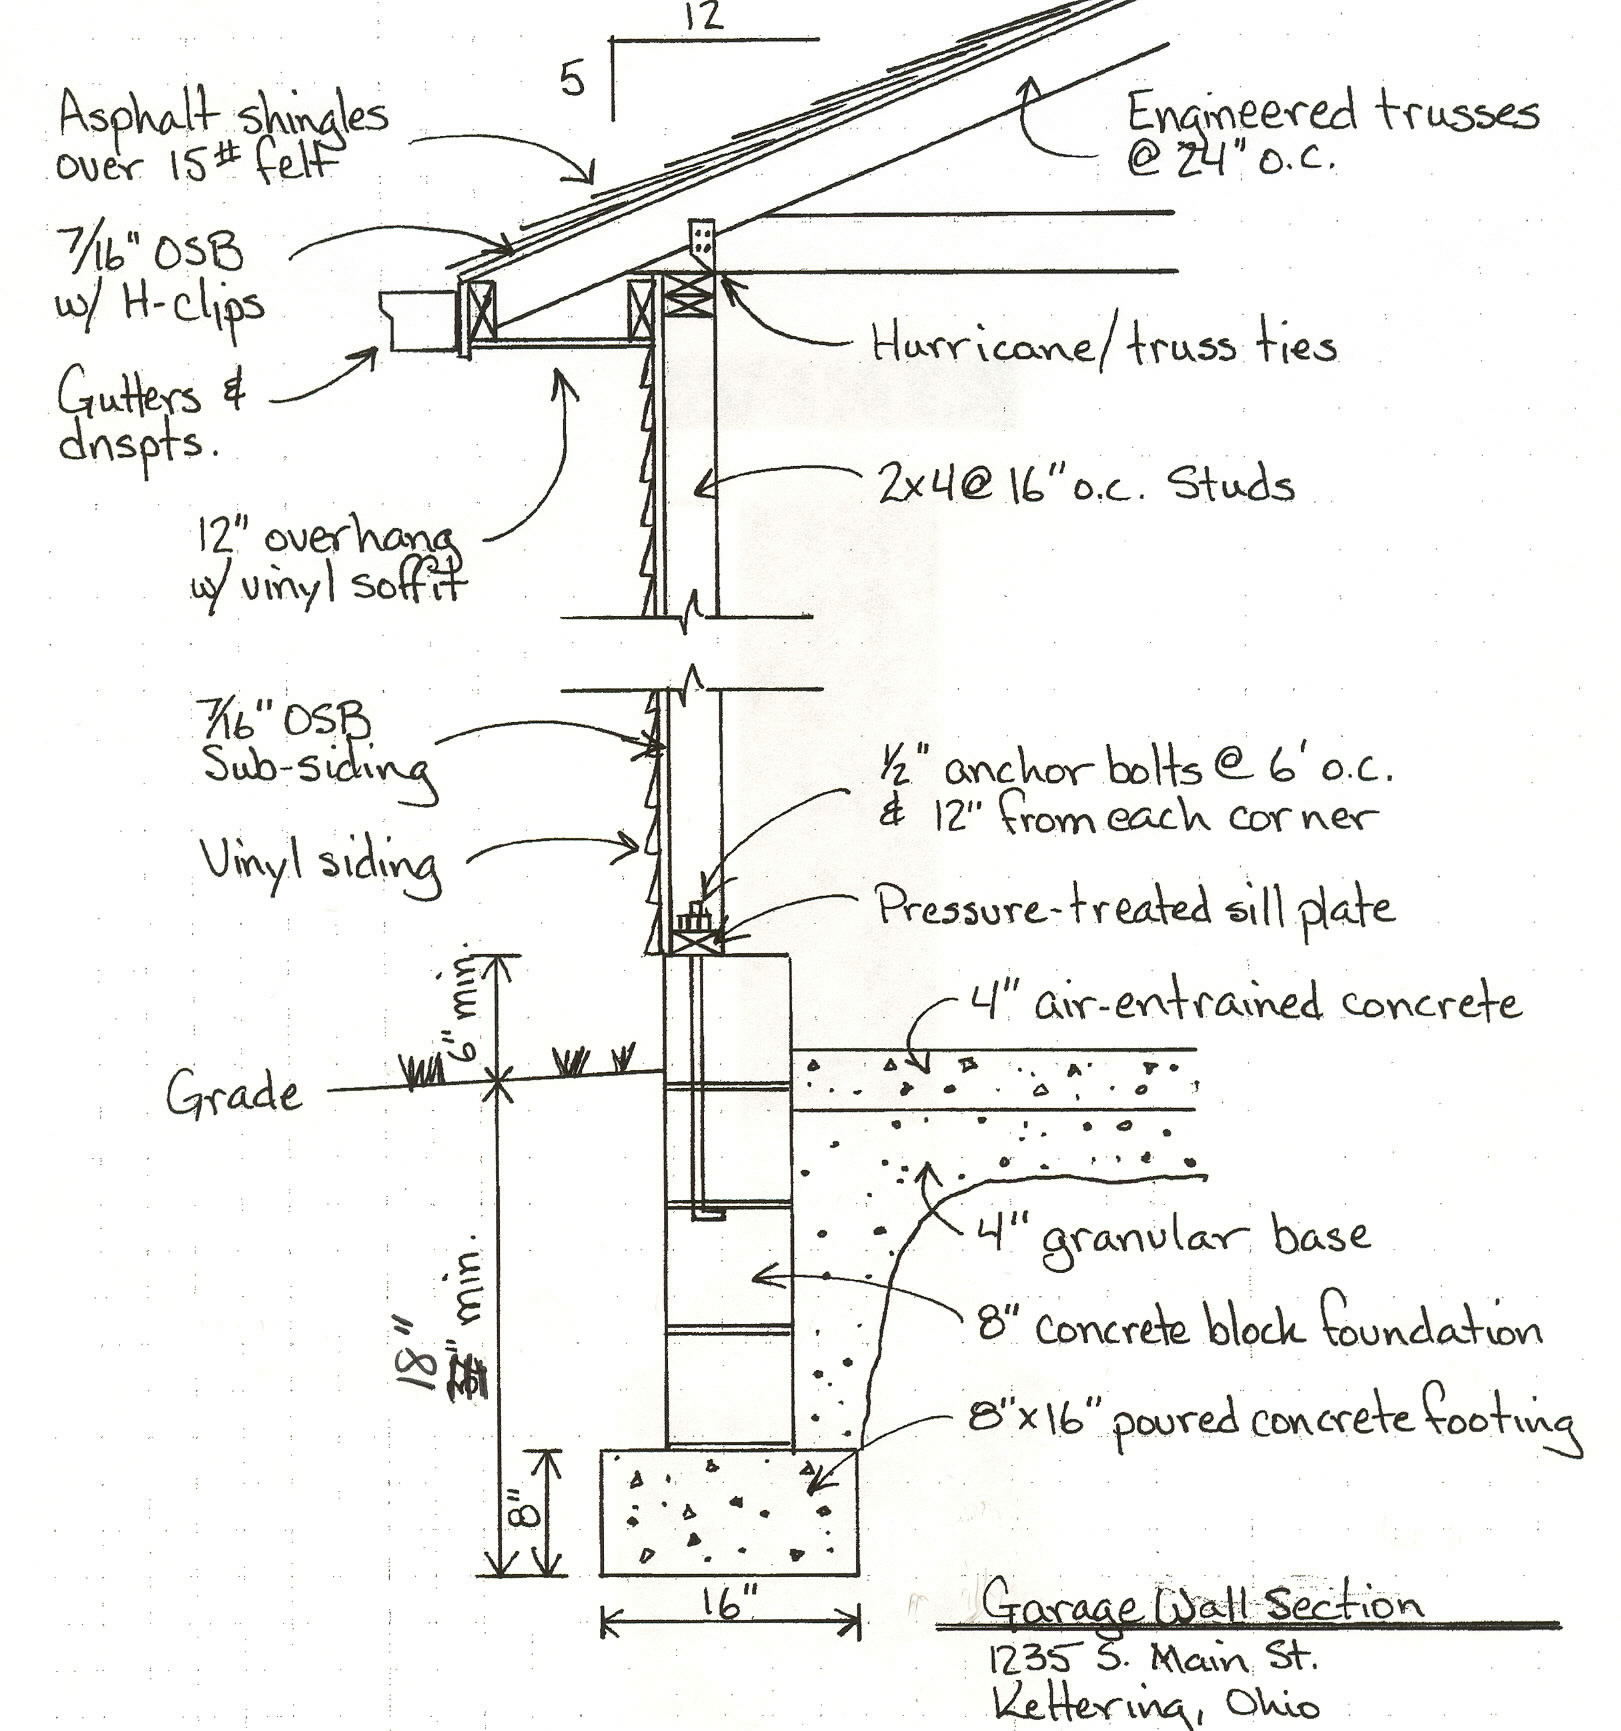 12
5
Asphalt shingles
over 15# felt
Engineered trusses
@ 24" o.c.
7/16" OSB
w/ H-clips
Hurricane/truss ties
Gutters &
dnspts.
2x4@ 16" o.c. Studs
12" overhang
w/ vinyl soffit
7/16" OSB
Sub-siding
1/2" anchor bolts @ 6' o.c.
& 12" from each corner
Vinyl siding
Pressure-treated sill plate
6" min.
4" air-entrained concrete
Grade
4" granular base
18" min.
8" concrete block foundation
8"x16" poured concrete footing
8"
16"
Garage Wall Section
1235 S. Main St.
Kettering, Ohio